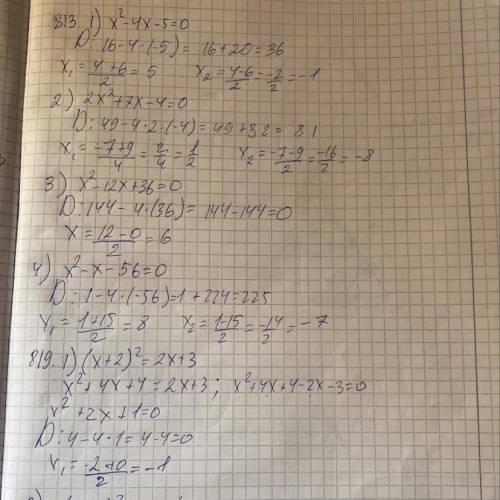 813. 1) x²-4x-5=0
D: 16-4·(-5)=16+20=36
x₁=(4+6)/2=5 x₂=(4-6)/2=-2/2=-1
2) 2x²+7x-4=0
D: 49-4·2·(-4)=49+32=81
x₁=(-7+9)/4=2/4=1/2 x₂=(-7-9)/2=-16/2=-8
3) x²-12x+36=0
D: 144-4·(36)=144-144=0
x=(12-0)/2=6
4) x²-x-56=0
D: 1-4·(-56)=1+224=225
x₁=(1+15)/2=8 x₂=(1-15)/2=-14/2=-7
819. 1) (x+2)²=2x+3
x²+4x+4=2x+3; x²+4x+4-2x-3=0
x²+2x+1=0
D: 4-4·1=4-4=0
x₁=(-2+0)/2=-1